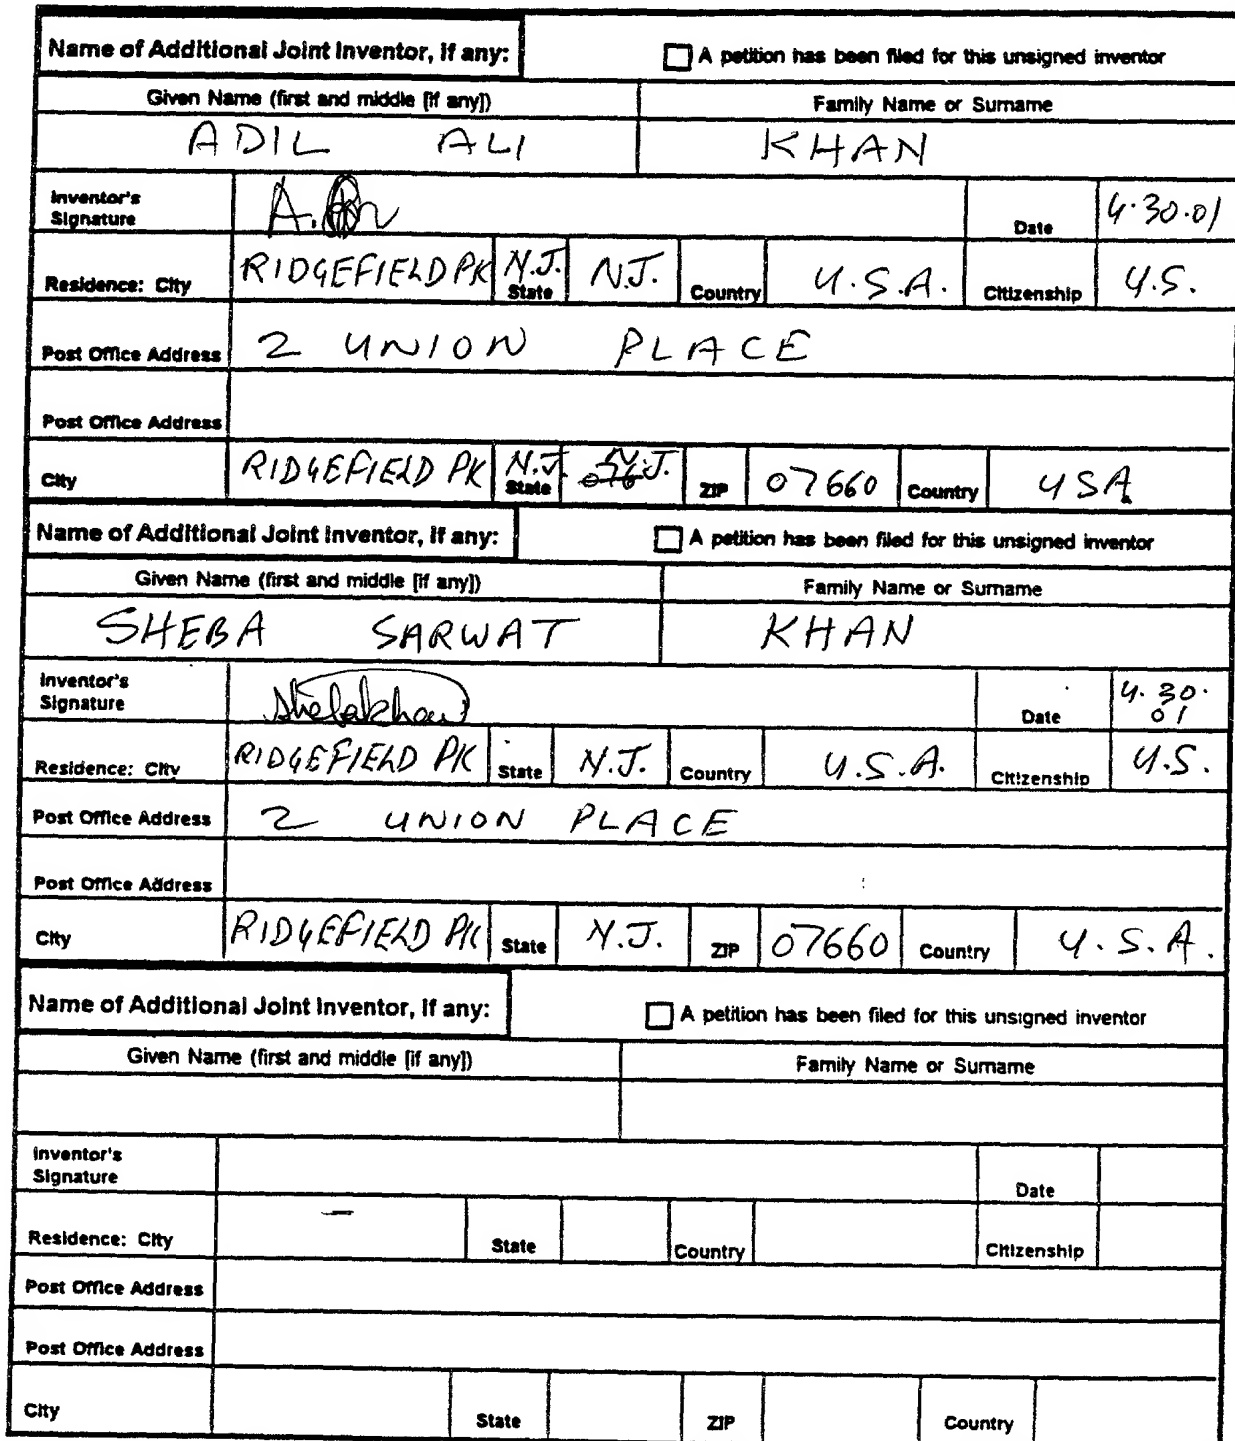 Name of Additional Joint Inventor, if any: A petition has been filed for this unsigned inventor
Given Name (first and middle [if any]) Family Name or Surname
ADIL ALI KHAN
Inventor's Signature Date 4.30.01
Residence: City RIDGEFIELD PK N.J. State N.J. Country U.S.A. Citizenship U.S.
Post Office Address 2 UNION PLACE
Post Office Address
City RIDGEFIELD PK N.J. State N.J. ZIP 07660 Country USA
Name of Additional Joint Inventor, if any: A petition has been filed for this unsigned inventor
Given Name (first and middle [if any]) Family Name or Surname
SHEBA SARWAT KHAN
Inventor's Signature Sheba Khan Date 4.30.01
Residence: City RIDGEFIELD PK State N.J. Country U.S.A. Citizenship U.S.
Post Office Address 2 UNION PLACE
Post Office Address
City RIDGEFIELD PK State N.J. ZIP 07660 Country U.S.A.
Name of Additional Joint Inventor, if any: A petition has been filed for this unsigned inventor
Given Name (first and middle [if any]) Family Name or Surname
Inventor's Signature Date
Residence: City State Country Citizenship
Post Office Address
Post Office Address
City State ZIP Country